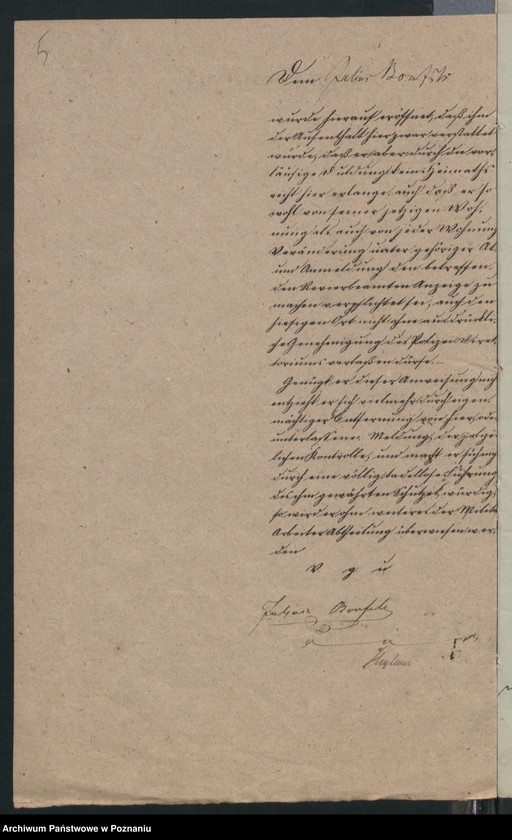 5
Dem Julius
wurde hierauf eröffnet, daß ihm
der Aufenthalt hier zwar verstattet
würde, daß er aber durch die vor¬
läufige Duldung kein Heimaths
recht hier erlange, auch daß er so
wohl von seiner jetzigen Woh¬
nung als auch von jeder Wohnungs
Veränderung unter gehöriger Ab
und Anmeldung den betreffen¬
den Revierbeamten Anzeige zu
machen verpflichtet sei, auch den
hiesigen Ort nicht ohne ausdrückli¬
che Genehmigung des Polizei Direk
toriums verlassen dürfe.
Genügt er dieser Anweisung nicht
entzieht er sich vielmehr durch eigen
mächtiger Entfernung von hier, oder
unterlassener Meldung, der polizei
lichen Kontrolle, und macht er sich nicht
durch eine völlig tadellose Führung
des ihm gewährten Schutzes würdig,
so wird er ohne weiteres der Militär
Arbeiter Abtheilung überwiesen wer¬
den
v g u
Julius
a u s
Archiwum Państwowe w Poznaniu